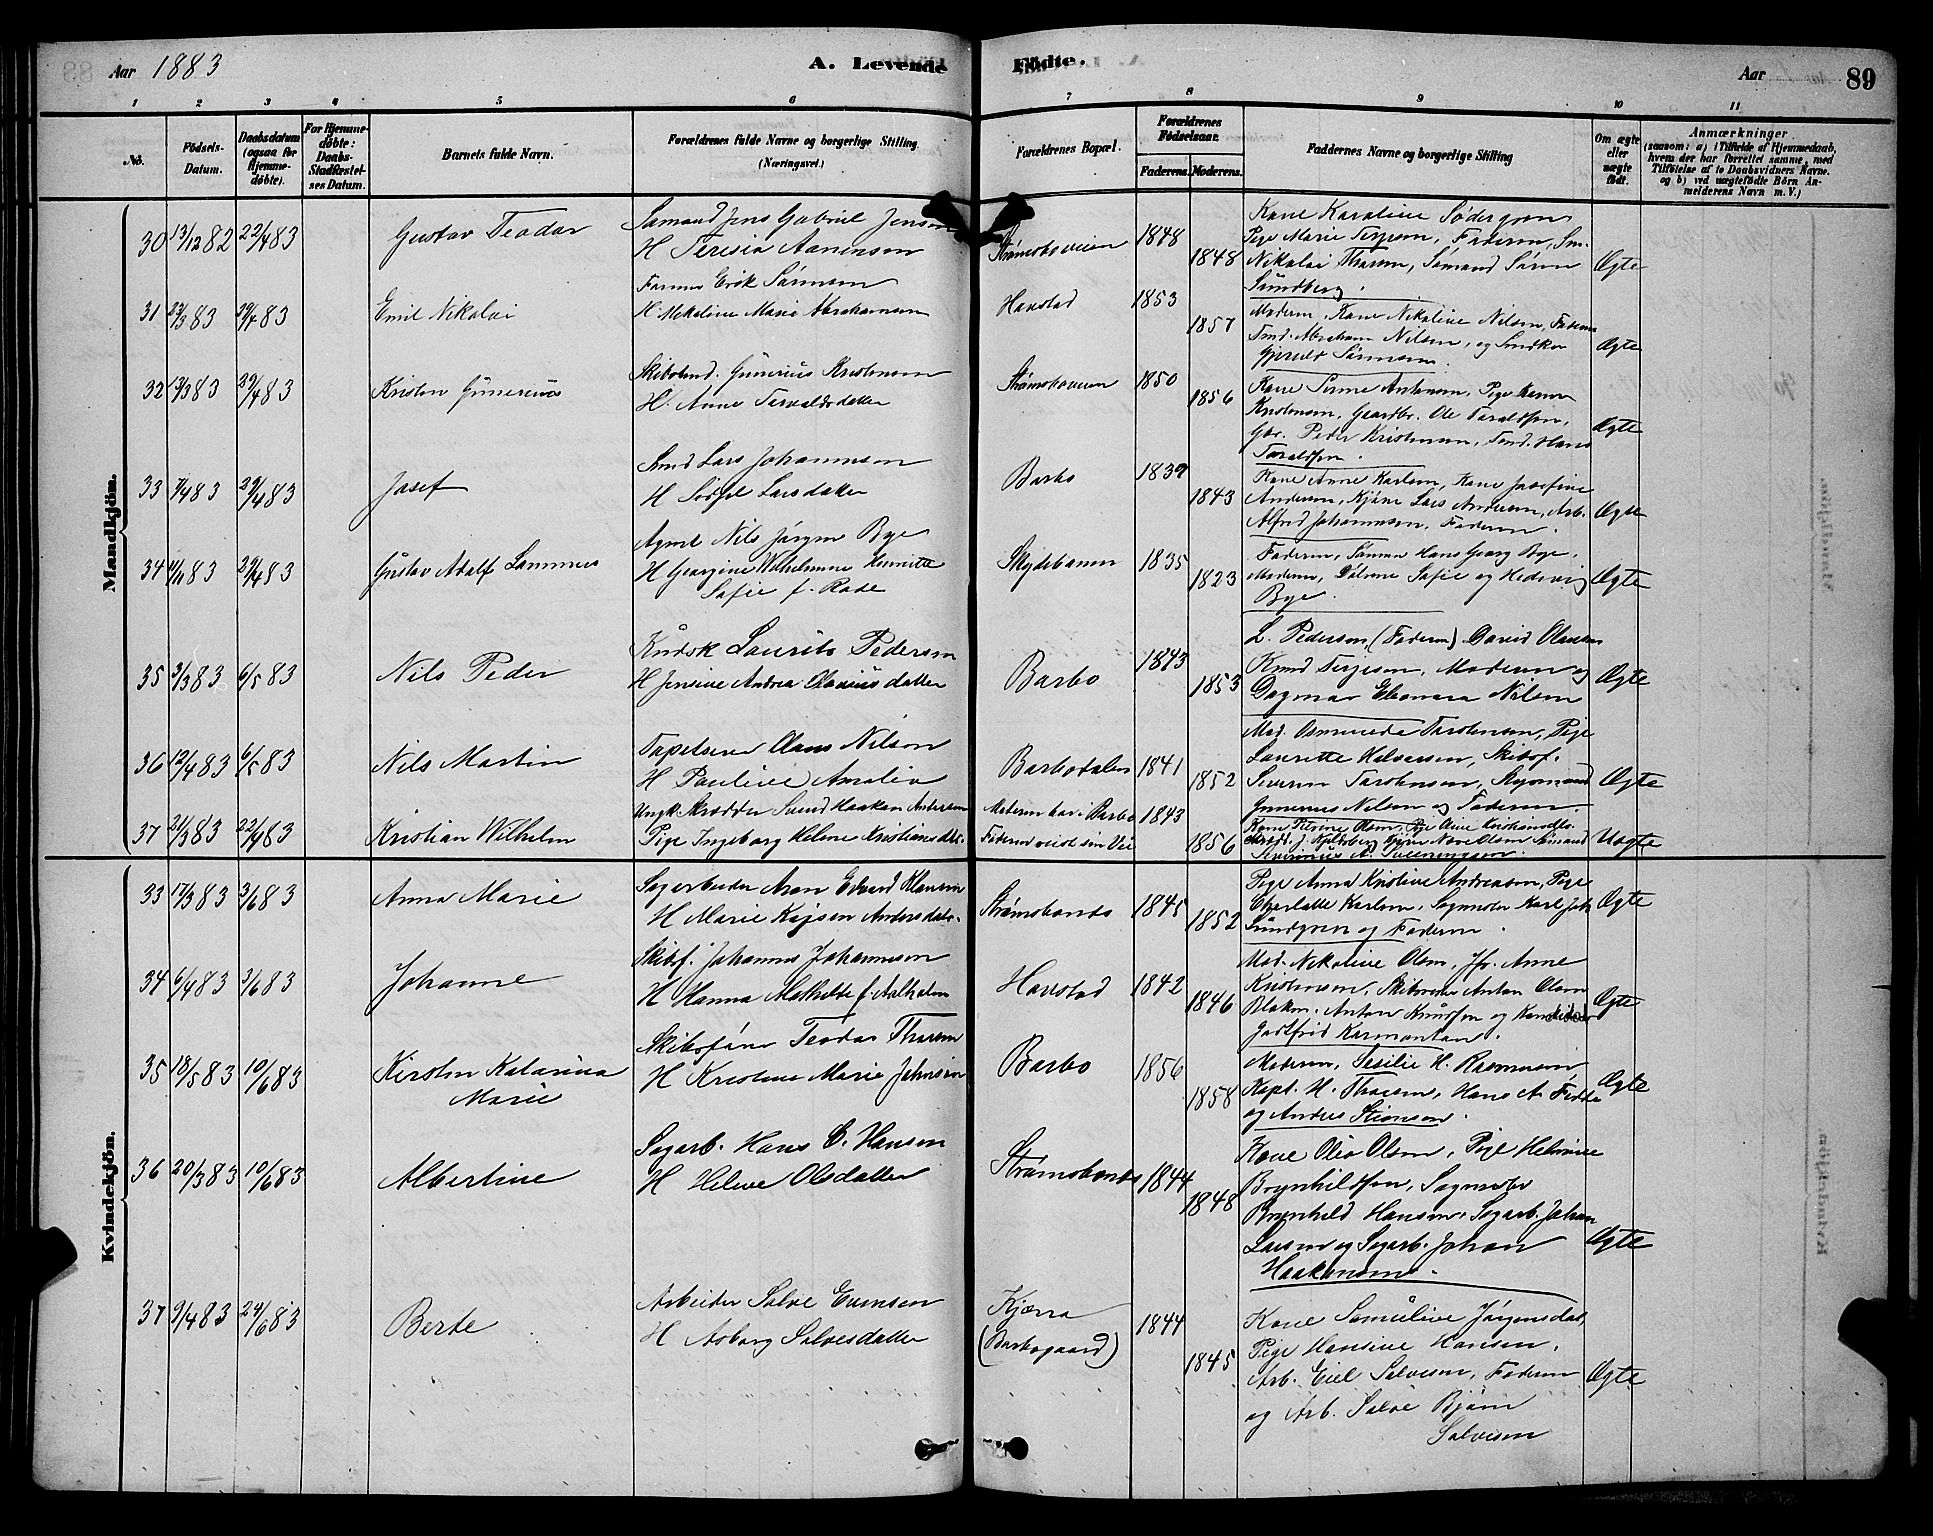 Aar 1883 A. Levende Födte. Aar 89
1 2 3 4 5 6 7 8 9 10 11
No. Födsels-Datum. Daabsdatum (ogsaa for Hjemmedöbte). For Hjemmedöbte: Daabs-Stadfæstelses Datum. Barnets fulde Navn. Forældrenes fulde Navne og borgerlige Stilling (Næringsvei.) Forældrenes Bopæl. Forældrenes Födselsaar. Faderens. Moderens. Faddernes Navne og borgerlige Stilling Om ægte eller uægte födt. Anmærkninger (saasom: a) i Tilfælde af Hjemmedaab, hvem der har forrettet samme, med Tilföielse af to Daabsvidners Navne. og b) ved uægtefödte Börn Anmelderens Navn m. V.)
Mandkjön.
30 13/12 82 22/4 83 Gustav Teodor Sømand Jens Gabriel Jensen Strømsboveien 1848 Kone Karoline Södergren
H Teresia Aanensen 1848 Pige Marie Terjesen, Faderen, Sm.
Nikolai Thorsen, Sømand Søren Ægte
Sundberg.
31 83 29/4 83 Emil Nikolai Farmer Erik Sørensen Havstad 1853
H Nikoline Marie Abrahamsen 1857 Moderen, Kone Nikoline Nilsen, Faderen
Tmd. Abraham Nilsen, og Snedker Ægte
Sørensen.
32 83 29/4 83 Kristen Gunerius Skibstmd. Gunerius Kristensen Strømsboveien 1850
H. Anne Tarvaldsdatter 1856 Kone Antonsen, Pige Karen
Kristensen, Gaardbr. Ole Taraldsen,
Gbr. Peder Kristensen, Tmd. Hans Ægte
Taraldsen.
33 7/4 83 29/4 83 Josef Smed Lars Johannesen Barbo 1837
H Larsdatter 1843 Kone Anne Karlsen, Kone Josefine
Andersen, Kjøre Lars Andersen, Arb. Ægte
Alfred Johannesen, Faderen.
34 83 29/4 83 Gustav Adolf Lammers Agent Nils Jørgen Bye Skydebanen 1835
H Georgine Wilhelmine Henriette 1823 Faderen, Sønnen Hans Georg Bye.
Sofie f. Rode Moderen, Døtrene Sofie og Hedevig Ægte
Bye.
35 3/3 83 6/5 83 Nils Peder Laurits Pedersen Barbo 1843 L. Pedersen, (Faderen) David Olausen
H Jensine Andrea Olausdatter 1853 Knud Terjesen, Moderen og Ægte
Dagmar Eleonora Nilsen
36 12/4 83 6/5 83 Nils Martin Tapetserer Olaus Nilsen Barbodalen 1841 Mad. Torstensen, Pige
H Pauline Amalia 1852 Laurette Halvorsen, Skibsf.
Severin Torstensen, Ægte
Gunerius Nilsen og Faderen.
37 21/3 83 22/4 83 Kristian Wilhelm Ungk. Skrædder Svend Haakon Andersen Moderen bor i Barbo 1843
Pige Ingeborg Helene Kristiansdtr. Faderen reist sin Vei 1856 Kone Olsen, Pige Oline Kristiansdtr. Uægte
Kvindekjön.
33 17/3 83 3/6 83 Anna Marie Sagarbeider Aron Edvard Klausen Strømsbonæs 1845 Pige Anna Kristine Andreasen, Pige
H Marie Kajsen Andersdatr. 1852 Charlotte Karlsen, Sagmester Karl Joh. Ægte
Sundgren og Faderen.
34 6/4 83 3/6 83 Johanne Skibsf. Johannes Johannesen Havstad 1842 Mad. Nikoline Olsen, Jfr. Anne
H Hanna Mathilde f. Aalholm 1846 Kristensen, Skibsreder Anton Olsen Ægte
Anton Knudsen og Kandidat
Gottfrid
35 18/5 83 10/6 83 Kirsten Katarina Skibsfører Teodor Thorsen Barbo 1856
Marie H Kristine Marie Johnsen 1858 Moderen, Sesilie H. Rasmussen
Kapt. H. Thorsen, Hans A. Ægte
og Anders
36 20/3 83 10/6 83 Albertine Sagarb. Hans C. Hansen Strømsbonæs 1844 Kone Olea Olsen, Pige Helmine
H Helene Olsdatter 1848 Brynhildsen, Sagmester
Brynhild Hansen, Sagarb. Johan
Larsen og Sagarb. Johan Ægte
Haakensen.
37 9/4 83 24/6 83 Berte Arbeider Salve Evensen Kjærra 1844 Kone Sameline Jørgensdat,
H Asborg Salvesdatter (Barbogaard) 1845 Pige Hansine Hansen.
Arb. Eiel Salvesen, Faderen Ægte
og Arb. Salve Bjørn
Salvesen